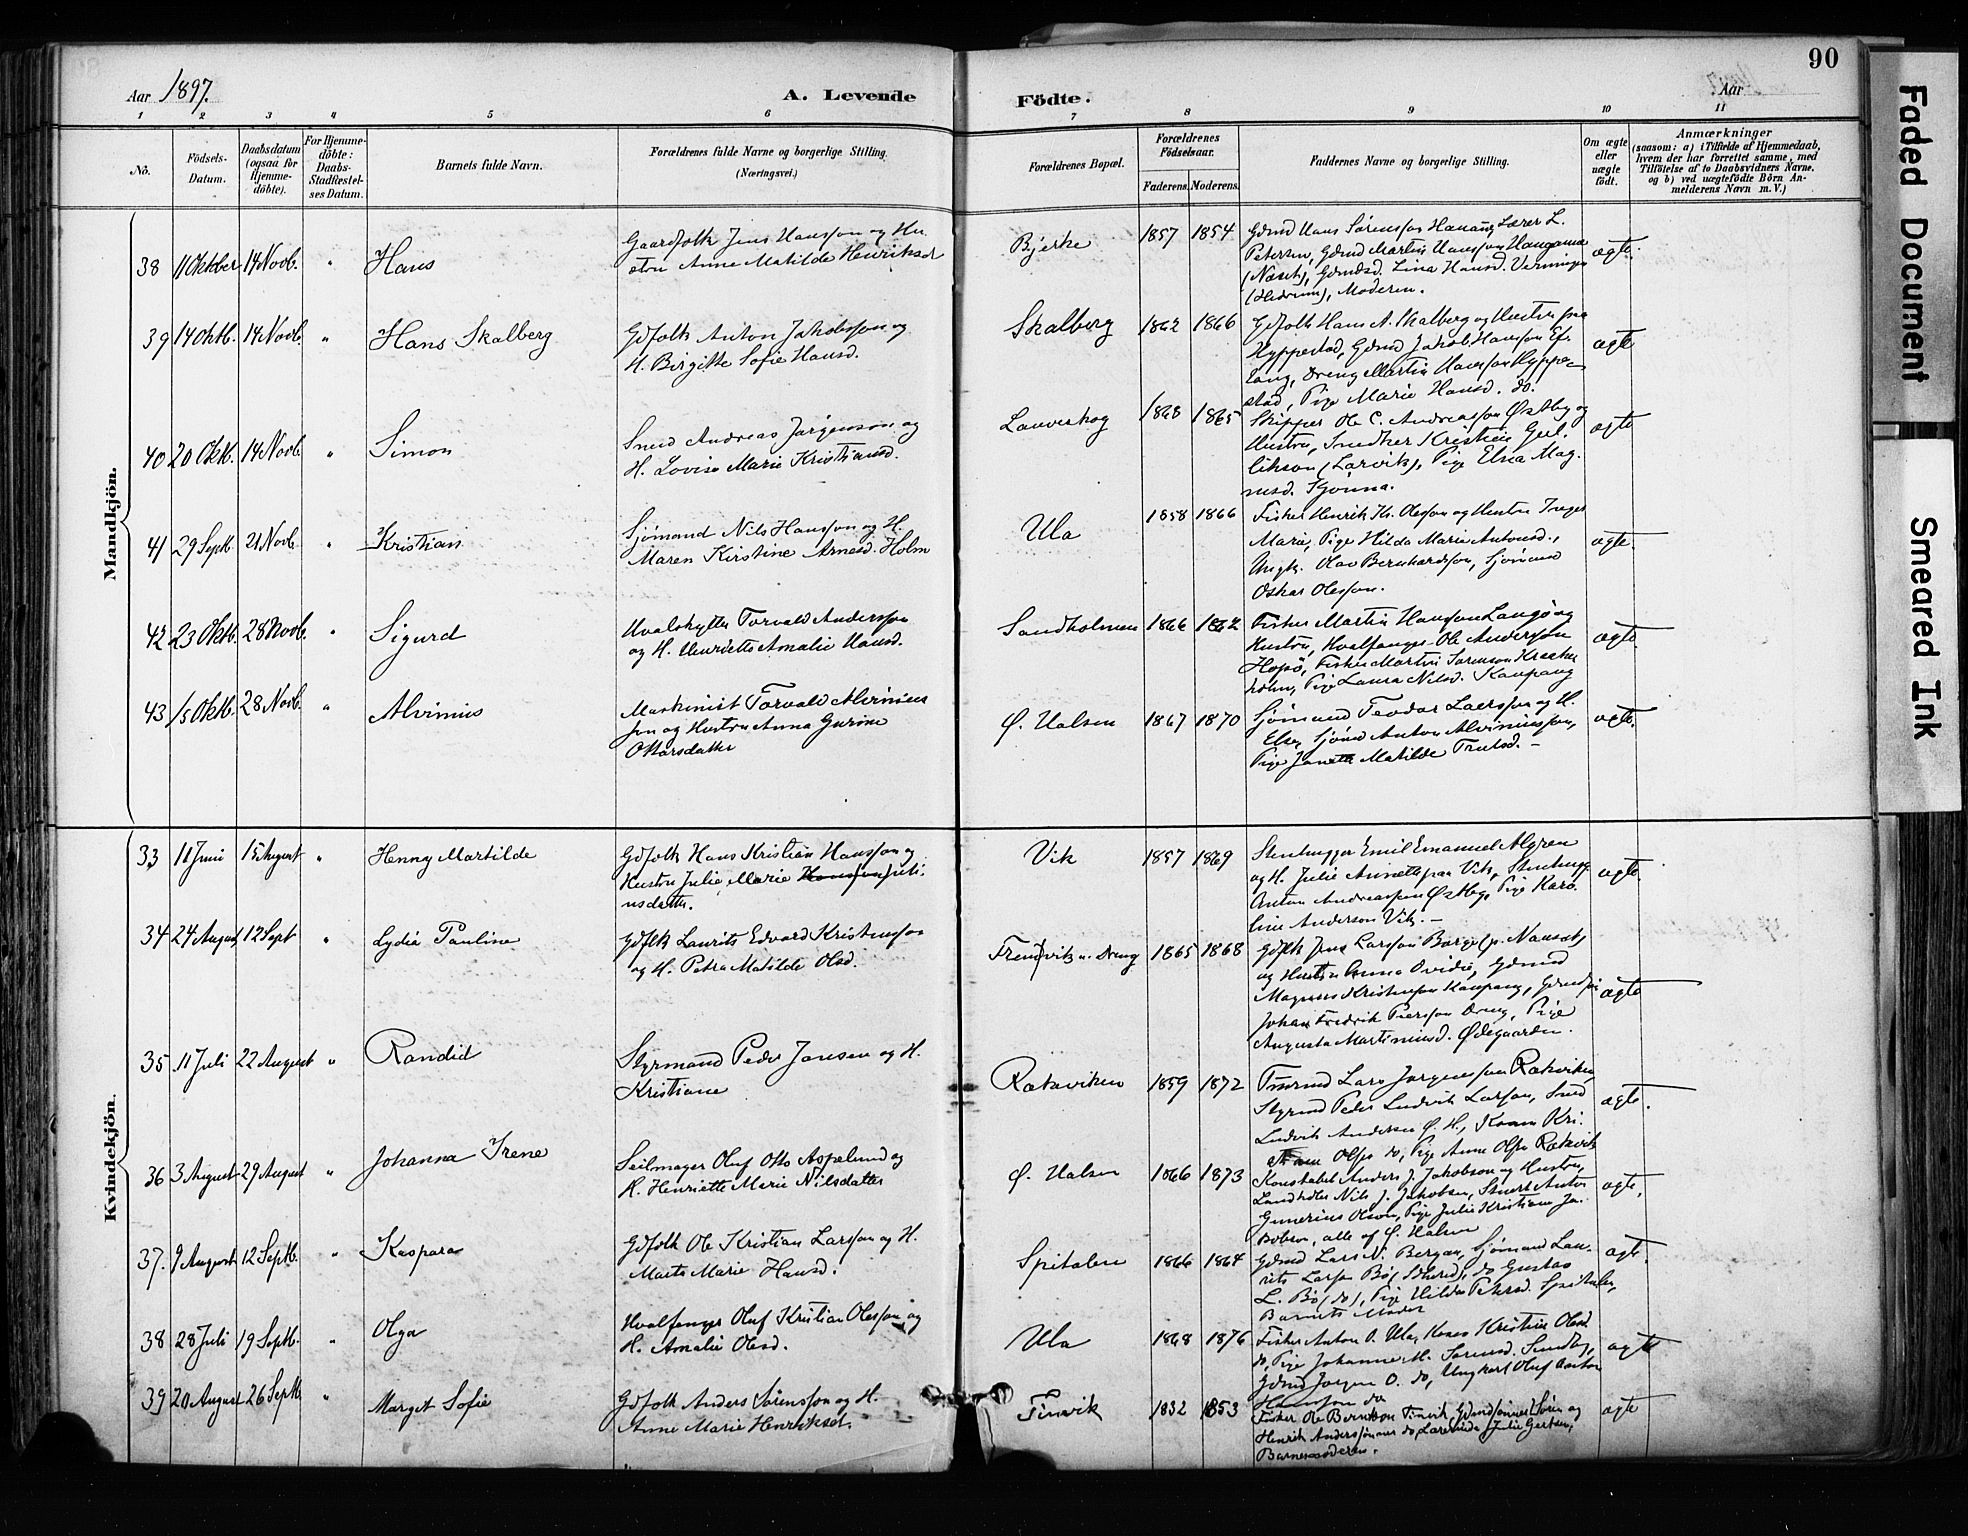 90
Aar 1897.
A. Levende
Födte.
Aar
1 2 3 4 5 6 7 8 9 10 11
No.
Födsels-
Datum.
Daabsdatum
(ogsaa for
Hjemme-
döbte).
For Hjemme-
döbte:
Daabs-
Stadfæstel-
ses Datum.
Barnets fulde Navn.
Forældrenes fulde Navne og borgerlige Stilling.
(Næringsvei.)
Forældrenes Bopæl.
Forældrenes
Födselsaar.
Faderens. Moderens.
Faddernes Navne og borgerlige Stilling.
Om ægte
eller
uægte
født.
Anmærkninger
(saasom: a) i Tilfælde af Hjemmedaab,
hvem der har forrettet samme, med
Tilföielse af to Daabsvidners Navne,
og b) ved uægtefödte Börn An-
melderens Navn m. V.)
Mandkjön.
38 11 Oktober 14 Novb. " Hans
Gaardfolk Jens Hansson og Hu
stru Anne Matilde Henriksd
Bjerke 1857 1854
Gdmd Hans Sørensson Lærer L.
Petersen, Gdmd Martin Hansson
Gdmdsd. Lina Hansd.
(Hedrum), Moderen.
ægte.
39 14 Oktb. 14 Novb. " Hans Skalberg
Gdfolk Anton Jakobsson og
H. Birgitte Sofie Hansd.
Skalberg 1862 1866
Gdfolk Hans A. Skalberg og Hustru paa
Hyppestad, Gdmd Jakob Hansson Ef-
tang, Dreng Martin Hansson Hyppe-
stad, Pige Marie Hansd. do.
ægte
40 20 Oktb. 14 Novb. " Simon
Smed Andreas Jørgensøn og
H. Lovise Marie Kristiansd.
Lauveskog 1868 1865
Skipper Ole C. Andreasson Østby og
Hustru, Snedker Kristian
(Larvik), Pige Elna Mag-
nusd.
ægte
41 29 Septb. 21 Novb. " Kristian
Sjømand Nils Hansson og H.
Maren Kirstine Arnesd. Holm
Ula 1858 1866
Fisker Henrik Olesson og Hustru Inger
Marie, Pige Hilda Marie Antonsd.,
Ungk. Olav Bernhardsson, Sjømand
Oskar Olesson.
ægte.
42 23 Oktb. 28 Novb. " Sigurd
Hvalskytter Torvald Andersson
og H. Henriette Amalie Hansd.
Sandholmen 1866 1862
Fisker Martin Hansson Langø og
Hustru, Hvalfanger Ole Anderson
Hopø, Fisker Martin Sørenson
Pige Laura Nilsd. Kaupang
ægte.
43 15 Oktb. 28 Novb. " Alvinius
Maskinist Torvald Alvinius
son og Hustru Anna Gurine
Ottarsdatter
Ø. Halsen 1867 1870
Sjømand Teodor Larsson og H.
Else, Sjømd Anton Alviniusson,
Pige Matilde Trulsd. –
ægte.
Kvindekjön.
33 11 Juni 15 August " Henny Martilde
Gdfolk Hans Kristian Hansson og
Hustru Julie Marie Juli-
usdatter.
Vik 1857 1869
Stenhugger Emil Emanuel Algren
og H. Julie Annette paa Vik, Stenhugg
Anton Andreassen Østby, Pige Karo-
line Anderson Vik. –
ægte.
34 24 August 12 Sept " Lydia Pauline
Gdflk Laurits Edvard Kristensson
og H. Petra Matilde Olsd.
1865 1868
Gdflk Jens Larsson
og Hustru Anna Ovidia, Gdmd
Magnus Kristenson Kaupang,
Johan Fredrik Pige
Augusta Martiniusd. Ødegaarden.
ægte
35 11 Juli 22 August " Randid
Styrmand Peder Jansen og H.
Kristiane
Rækaviken 1859 1872
Lars Jørgensen Rækviken,
Styrmd Peder Ludvik Larson, Smed
Ludvik Andersen Ø. H., Konen Kri-
do, Pige Anne Rækvik
ægte.
36 3 August 29 August " Johanna Irene
Seilmager Oluf Otto Aspelund og
H. Henriette Marie Nilsdatter
Ø. Halsen 1866 1873
Konstabel Anders J. Jakobson og Hustru,
Landhdler Nils J. Jakobsen, Stuert Anton
Gunerius Olson, Pige Julie Kristiane Ja-
kobson, alle af Ø. Halsen
ægte.
37. 9 August 12 Septb. " Kaspara
Gdfolk Ole Kristian Larsson og H.
Marte Marie Hansd.
Spitalen 1866 1864
Gdmd Lars N. Bergan, Sjømand Lau-
rits Larsen Bø, do Gustav
L. Bø (do), Pige Hilda Petersd. Spitalen,
Barnets Moder
ægte.
38 28 Juli 19 Septb. " Olga
Hvalfanger Oluf Kristian Olesson og
H. Amalie Olesd.
Ula 1868 1876
Fisker Anton O. Ula, Konen Kristine Olesd
do, Pige Johanne M. Sørensd. Sundby,
Gdmd Jørgen O. do, Ungkarl Oluf Anton
Hansson do
ægte
39 20 August 26 Septb. " Margit Sofie
Gdfolk Anders Sørensson og H.
Anne Marie Henriksd.
Tinvik 1832 1853
Fisker Ole Berntson Tinvik, Gdmdsønner Søren og
Henrik Anderssønner do, Lærerinde Julie Gertsen,
Barnemoderen.
ægte
Faded Document
Smeared Ink